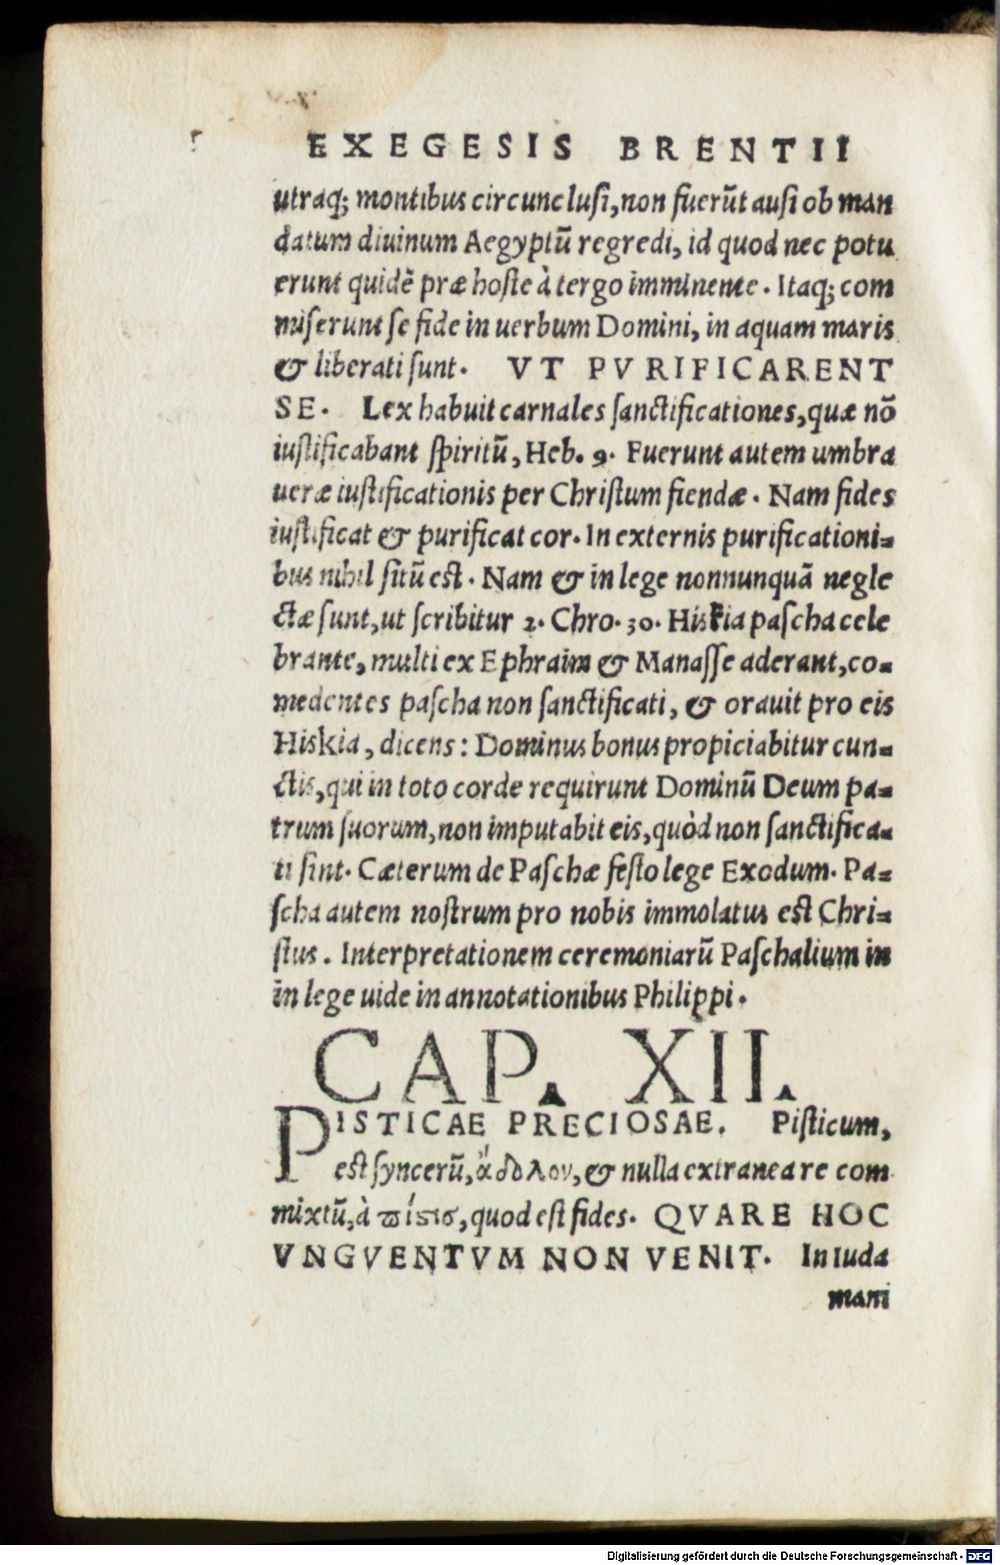 EXEGESIS BRENTII
utraq; montibus circunclusi, non fuerũt ausi ob man
datum diuinum Aegyptũ regredi, id quod nec potu
erunt quidẽ præ hoste à tergo imminente. Itaq; com
miserunt se fide in uerbum Domini, in aquam maris
& liberati sunt. VT PVRIFICARENT
SE. Lex habuit carnales sanctificationes, quæ nõ
iustificabant spiritũ, Heb. 9. Fuerunt autem umbra
ueræ iustificationis per Christum fiendæ. Nam fides
iustificat & purificat cor. In externis purificationi=
bus nihil sitũ est. Nam & in lege nonnunquã negle
ctæ sunt, ut scribitur 2. Chro. 30. Hiskia pascha cele
brante, multi ex Ephraim & Manasse aderant, co=
medentes pascha non sanctificati, & orauit pro eis
Hiskia, dicens: Dominus bonus propiciabitur cun=
ctis, qui in toto corde requirunt Dominũ Deum pa=
trum suorum, non imputabit eis, quòd non sanctifica=
ti sint. Cæterum de Paschæ festo lege Exodum. Pa=
scha autem nostrum pro nobis immolatus est Chri=
stus. Interpretationem ceremoniarũ Paschalium in
in lege uide in annotationibus Philippi.
CAP. XII.
PISTICAE PRECIOSAE. Pisticum,
est syncerũ, ἄδολον, & nulla extranea re com
mixtũ, à πίστις, quod est fides. QVARE HOC
VNGVENTVM NON VENIT. In Iuda
mani
Digitalisierung gefördert durch die Deutsche Forschungsgemeinschaft - DFG